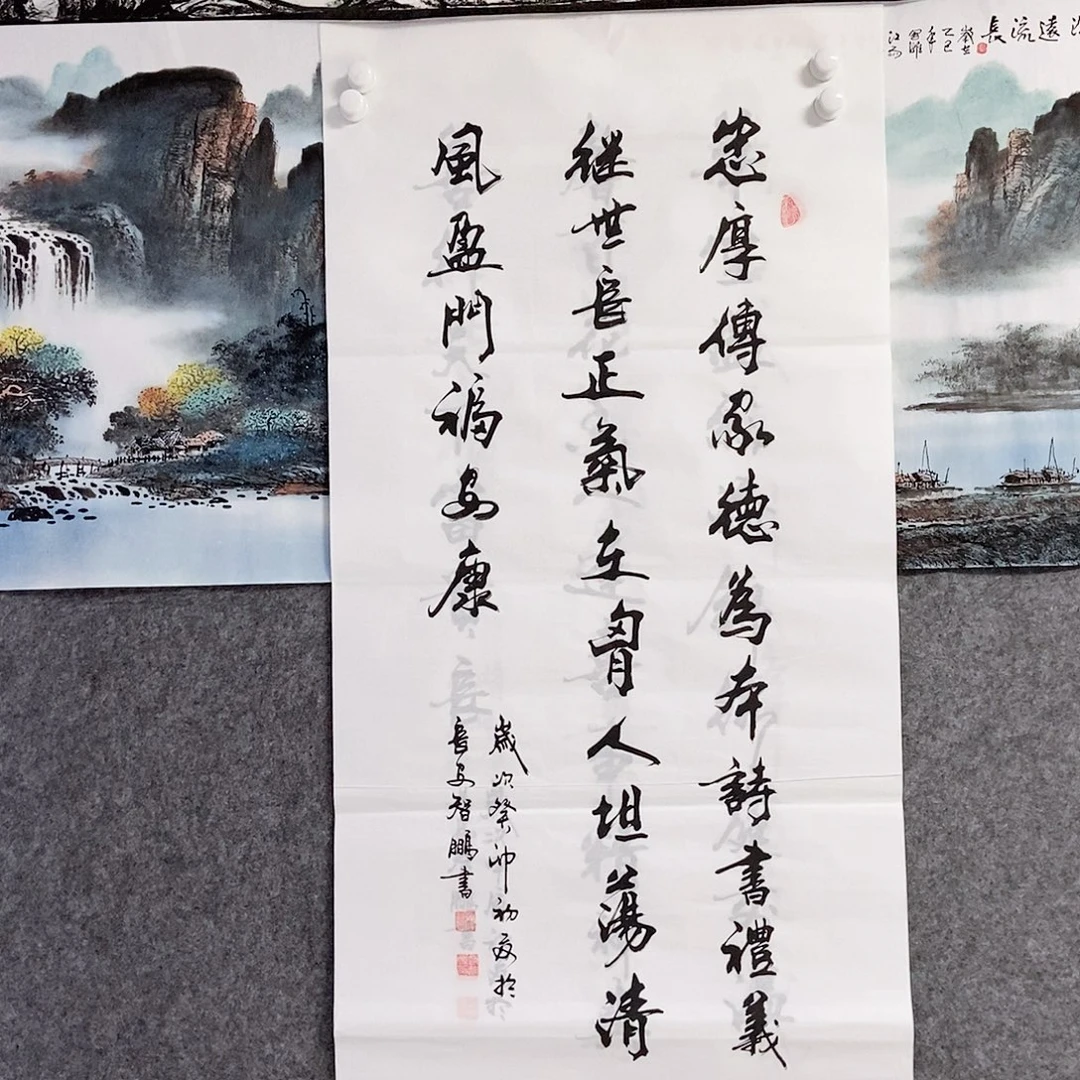 遠流長
歲在
乙巳
年
忠厚傳家德為本詩書禮義
继世長正氣在胷人坦蕩清
風盈門福安康
歲次癸卯初夏於
長安智鵬書